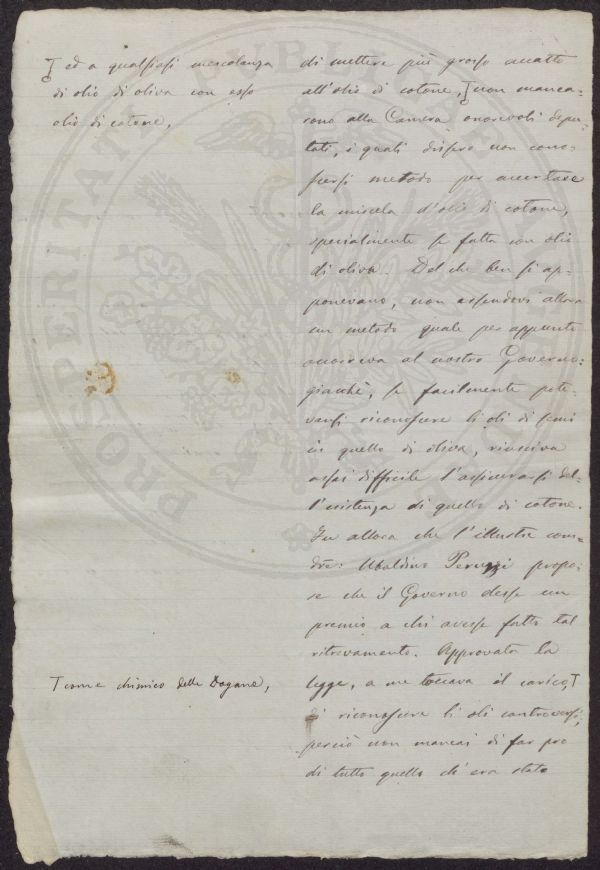 ed a qualsiasi mescolanza
di olio di oliva con esso
olio di cotone,
di mettere più grosso accatto
all'olio di cotone, non manca-
rono alla Camera onorevoli depu-
tati, i quali dissero non cono-
scersi metodo per accertare
la miscela d'olio di cotone,
specialmente se fatta con olio
di oliva. Del che ben si ap-
ponevano, non essendovi allora
un metodo quale per appunto
occorreva al nostro Governo:
giacchè, se facilmente pote-
vansi riconoscere li oli di semi
in quello di oliva, riusciva
assai difficile l'assicurarsi del-
l'esistenza di quello di cotone.
Fu allora che l'illustre com-
dre: Ubaldino Peruzzi propo-
se che il Governo desse un
premio a chi avesse fatto tal
ritrovamento. Approvata la
come chimico delle Dogane,
legge, a me toccava il carico,
di riconoscere li oli controversi,
perciò non mancai di far pro
di tutto quello ch'era stato
PROSPERITATI PUBLICAE